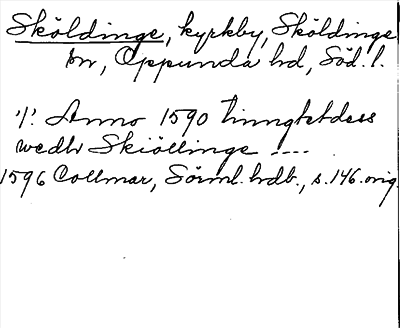 Sköldinge, kyrkby, Sköldinge
sn, Oppunda hd, Söd. l.
"/". Anno 1590 tinngtetdess
wedh Skiöllinge ----
1596 Collmar, Sörml. hdb., s. 146. orig.